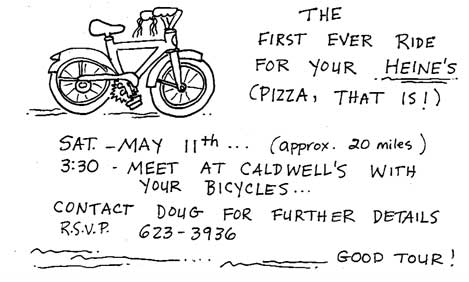 THE
FIRST EVER RIDE
FOR YOUR HEINE'S
(PIZZA, THAT IS!)
SAT. - MAY 11th ... (approx. 20 miles)
3:30 - MEET AT CALDWELL'S WITH
YOUR BICYCLES...
CONTACT DOUG FOR FURTHER DETAILS
R.S.V.P. 623-3936
GOOD TOUR!